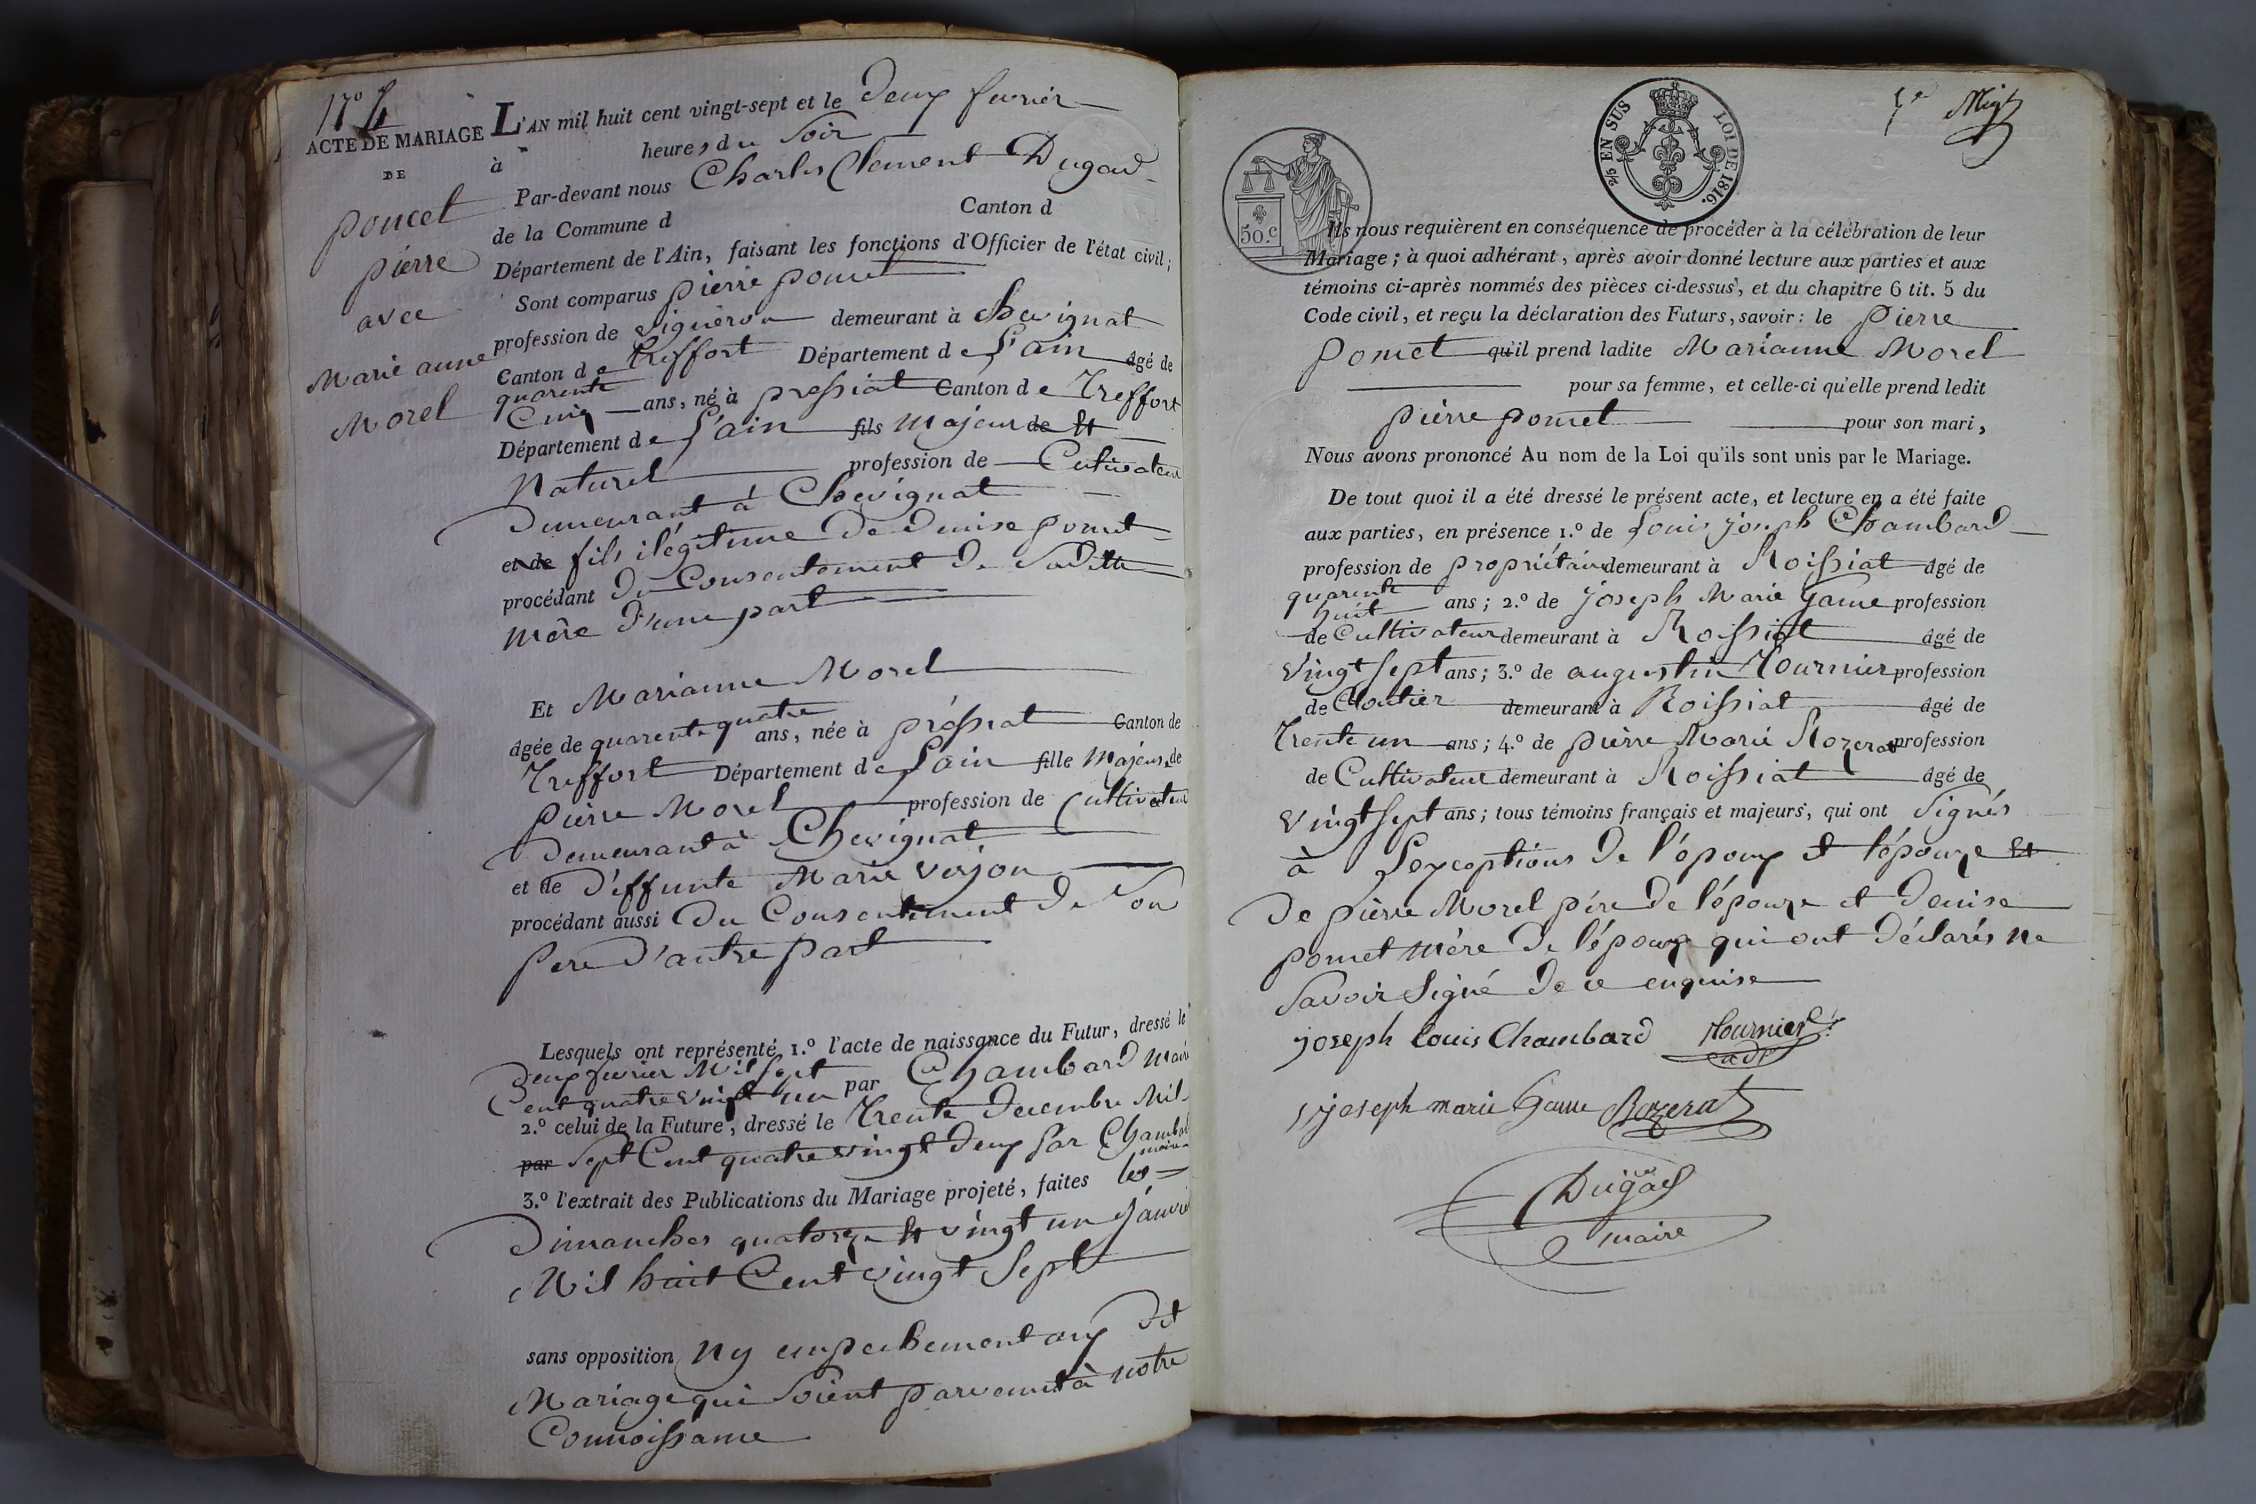 17° 4
ACTE DE MARIAGE
DE
poncet
pierre
avec
Marie anne
Morel
L'AN mil huit cent vingt-sept et le deux fevrier
à heures du Soir
Par-devant nous Charles Clement Dugad
de la Commune d Canton d
Département de l'Ain, faisant les fonctions d'Officier de l'état civil;
Sont comparus pierre poncet
profession de vigneron demeurant à chevignat
Canton de treffort Département de L'ain âgé de
quarente
Cinq ans, né à pressiat Canton de Treffort
Département de L'ain fils Majeur de Et
Naturel profession de Cultivateur
demeurant à Chevignat
et de fils ilégitime de denise poncet
procédant du Consentement de Saditte
mère d'une part
Et Marianne Morel
âgée de quarente quatre ans, née à préssiat Canton de
Treffort Département de L'ain fille Majeure de
pierre Morel profession de Cultivateur
demeurant à Chevignat
et de D'effunte Marie verjon
procédant aussi du Consentement de Son
pere d'autre part
Lesquels ont représenté 1.° l'acte de naissance du Futur, dressé le
deux fevrier Mil Sept
Cent quatre vingt un par Chambard maire
2.° celui de la Future, dressé le Trente decembre Mil
par Sept Cent quatre vingt deux par Chambard
maire
3.° l'extrait des Publications du Mariage projeté, faites les
Dimanches quatorze Et vingt un Janvier
Mil huit Cent vingt Sept
sans opposition ny empechement aux dit
Mariage qui Soient parvenut à notre
Connoissance
50.c
2/5 EN SUS LOI DE 1816.
Ils nous requièrent en conséquence de procéder à la célébration de leur
Mariage; à quoi adhérant, après avoir donné lecture aux parties et aux
témoins ci-après nommés des pièces ci-dessus, et du chapitre 6 tit. 5 du
Code civil, et reçu la déclaration des Futurs, savoir: le pierre
poncet qu'il prend ladite Marianne Morel
pour sa femme, et celle-ci qu'elle prend ledit
pierre poncet pour son mari,
Nous avons prononcé Au nom de la Loi qu'ils sont unis par le Mariage.
De tout quoi il a été dressé le présent acte, et lecture en a été faite
aux parties, en présence 1.° de Louis joseph Chambard
profession de propriétaire demeurant à Roissiat âgé de
quarente
huit ans; 2.° de joseph Marie Game profession
de Cultivateur demeurant à Roissiat âgé de
vingt Sept ans; 3.° de augustin Tournier profession
de Cloutier demeurant à Roissiat âgé de
Trente un ans; 4.° de pierre Marie Rozerat profession
de Cultivateur demeurant à Roissiat âgé de
vingt Sept ans; tous témoins français et majeurs, qui ont Signés
à L'exceptions de l'époux et l'épouze Et
de pierre Morel père de l'épouze et denise
poncet mère de l'époux qui ont déclarés ne
Savoir Signé de ce enquise
joseph louis Chambard Tournier
joseph marie Game Rozerat
Dugad
maire